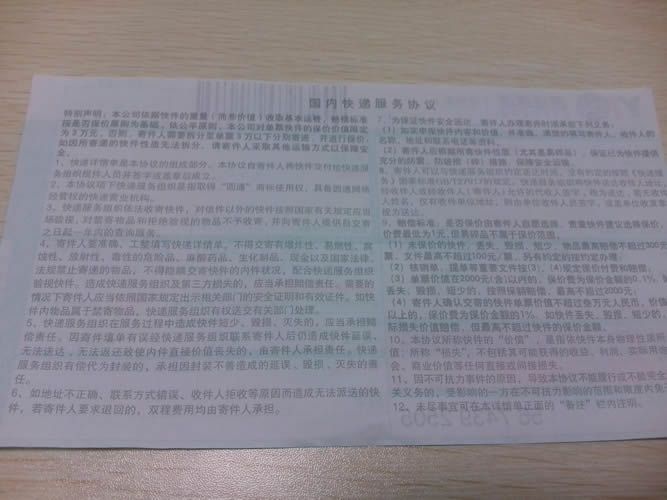 国内快递服务协议
特别声明：本公司依据快件的重量（而非价值）收取基本运费，赔偿标准
按是否保价原则为基础。依公平原则，本公司对单票快件的保价价值限定
为3万元，否则，寄件人需要拆分至单票3万以下分别寄递，并进行保价，
如因所寄递的快件性质无法拆分，请寄件人采取其他运输方式以保障安
全。
1、快递详情单是本协议的组成部分。本协议自寄件人将快件交付给快递
服务组织揽件人员并签字或盖章后成立。
2、本协议项下快递服务组织是指取得“圆通”商标使用权，具备圆通网络
经营权的快递营业机构。
3、快递服务组织依法收寄快件，对信件以外的快件按照国家有关规定应当
场验视，对禁寄物品和拒绝验视的物品不予收寄，并向寄件人提供自交寄
之日起一年内的查询服务。
4、寄件人要准确、工整填写快递详情单，不得交寄有爆炸性、易燃性、腐
蚀性、放射性、毒性的危险品、麻醉药品、生化制品、现金以及国家法律、
法规禁止寄递的物品，不得隐瞒交寄快件的内件状况，配合快递服务组织
验视快件。造成快递服务组织及第三方损失的，应当承担赔偿责任。需要的
情况下寄件人应当依照国家规定出示相关部门的安全证明和有效证件。如快
件内物品属于禁寄物品，快递服务组织有权送交有关部门处理。
5、快递服务组织在服务过程中造成快件短少、毁损、灭失的，应当承担赔
偿责任。因寄件填单有误经快递服务组织联系寄件人后仍造成快件延误、
无法送达、无法返还致使内件直接价值丧失的，由寄件人承担责任。快递
服务组织有偿代为封装的，承担因封装不善造成的延误、毁损、灭失的责
任。
6、如地址不正确、联系方式错误、收件人拒收等原因而造成无法派送的快
件，若寄件人要求退回的，双程费用均由寄件人承担。
7、为保证快件安全送达，寄件人办理寄件时须承担下列义务。
（1）如实申报快件内容和价值，并准确、清楚的填写寄件人、收件人的
名称、地址和联系电话等资料。
（2）寄件人应根据所寄快件性质（尤其易碎品），保证已为快件提供
充分的防震、防碰撞（碎）措施，保障安全运输。
8、寄件人可以与快递服务组织约定送达时间，没有约定的按照《快递服
务》国家标准
9、赔偿标准：是否保价由寄件人自愿选择，贵重快件建议选择保价，
价位费最低为1元，但易碎品不属于保价范围。
（1）未保价的快件，丢失、毁损、短少，物品最高赔偿不超过300元/
票，文件最高不超过100元/票，另有约定的按约定办理；
（2）核销单、提单等重要文件按（3）、（4）受保价付费和赔偿；
（3）单票价值在2000元（含）以内的，保价费为保价金额的0.1%，
丢失、毁损、短少的，按照保额赔偿，最高不超过2000元。
（4）寄件人确认交寄的快件单票价值不超过叁万元人民币，价值
以上的，保价费为保价金额的1%。如快件丢失、毁损、短少的，
际损失价值赔偿，但最高不超过快件的保价金额。
10、本协议所称快件的“价值”，是指依快件本身物理性质所
值；所称“损失”，不包括其可能获得的收益、利润、实际用途
会、商业价值等任何直接或间接损失。
11、因不可抗力事件的原因，导致本协议不能履行或不能完全
关义务的，受影响的一方在不可抗力影响的范围和限度内免
12、未尽事宜可在本详情单正面的“备注”栏内注明。